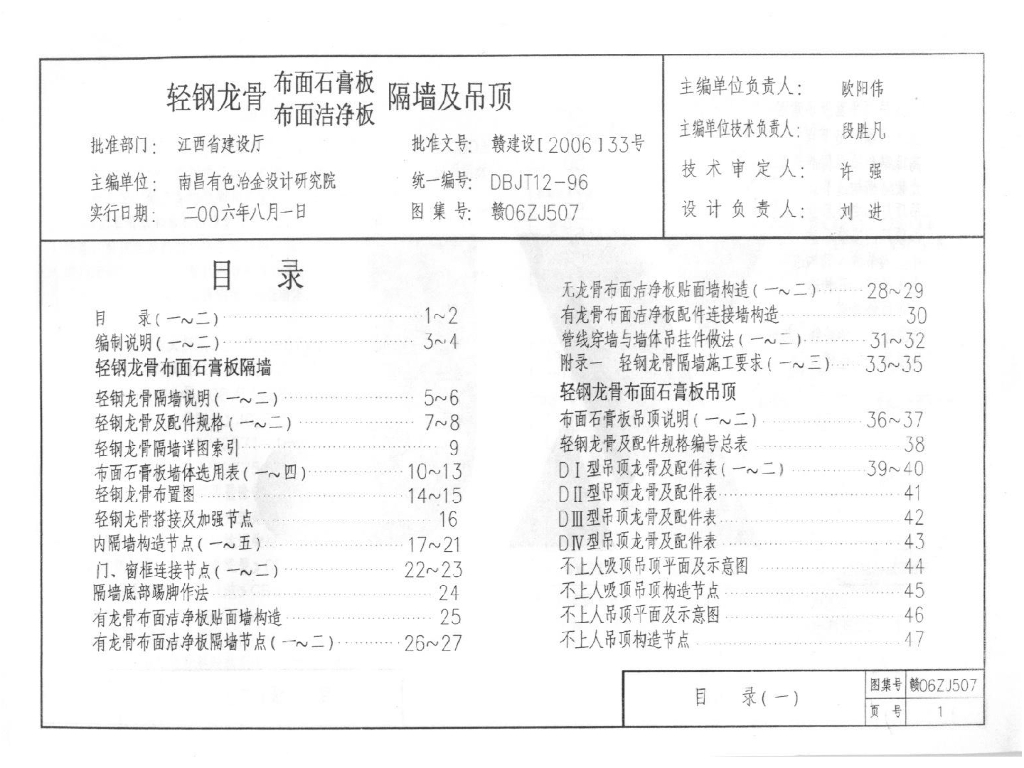 轻钢龙骨 布面石膏板 隔墙及吊顶
布面洁净板
批准部门： 江西省建设厅 批准文号： 赣建设[2006]33号
主编单位： 南昌有色冶金设计研究院 统一编号： DBJT12-96
实行日期： 二00六年八月一日 图集号： 赣06ZJ507
主编单位负责人： 欧阳伟
主编单位技术负责人： 段胜凡
技术审定人： 许强
设计负责人： 刘进
目 录
目 录(一~二) 1~2
编制说明(一~二) 3~4
轻钢龙骨布面石膏板隔墙
轻钢龙骨隔墙说明(一~二) 5~6
轻钢龙骨及配件规格(一~二) 7~8
轻钢龙骨隔墙详图索引 9
布面石膏板墙体选用表(一~四) 10~13
轻钢龙骨布置图 14~15
轻钢龙骨搭接及加强节点 16
内隔墙构造节点(一~五) 17~21
门、窗框连接节点(一~二) 22~23
隔墙底部踢脚作法 24
有龙骨布面洁净板贴面墙构造 25
有龙骨布面洁净板隔墙节点(一~二) 26~27
无龙骨布面洁净板贴面墙构造(一~二) 28~29
有龙骨布面洁净板配件连接墙构造 30
管线穿墙与墙体吊挂件做法(一~二) 31~32
附录一 轻钢龙骨隔墙施工要求(一~三) 33~35
轻钢龙骨布面石膏板吊顶
布面石膏板吊顶说明(一~二) 36~37
轻钢龙骨及配件规格编号总表 38
DⅠ型吊顶龙骨及配件表(一~二) 39~40
DⅡ型吊顶龙骨及配件表 41
DⅢ型吊顶龙骨及配件表 42
DⅣ型吊顶龙骨及配件表 43
不上人吸顶吊顶平面及示意图 44
不上人吸顶吊顶构造节点 45
不上人吊顶平面及示意图 46
不上人吊顶构造节点 47
目 录(一) 图集号 赣06ZJ507
页 号 1